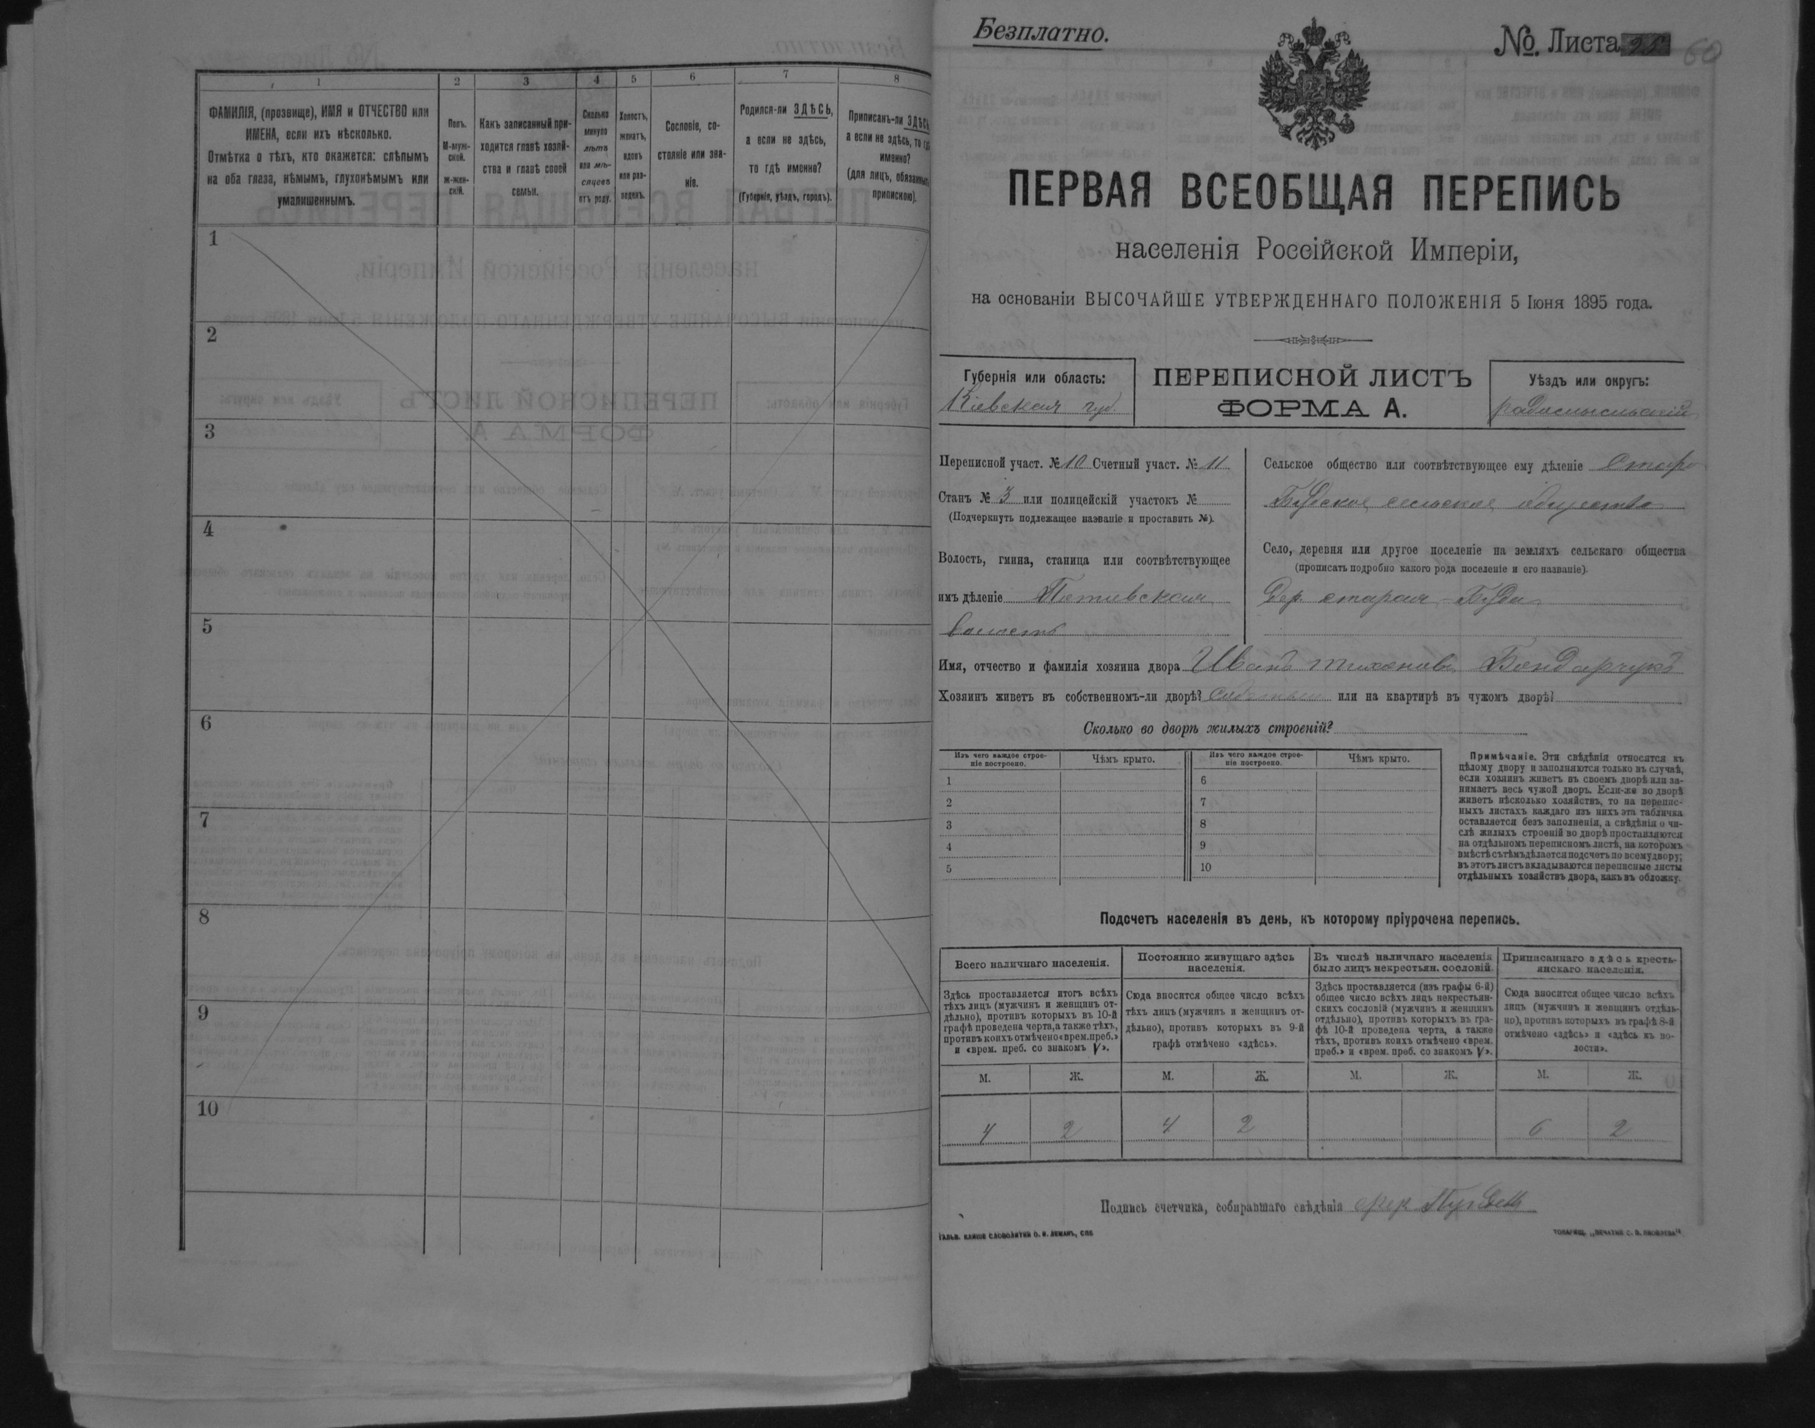 1 2 3 4 5 6 7 8
ФАМИЛІЯ, (прозвище), ИМЯ и ОТЧЕСТВО или
ИМЕНА, если ихъ нѣсколько.
Отмѣтка о тѣхъ, кто окажется: слѣпымъ
на оба глаза, нѣмымъ, глухонѣмымъ или
умалишеннымъ.
Полъ.
М-муж-
ской.
Ж-жен-
скій.
Какъ записанный при-
ходится главѣ хозяй-
ства и главѣ своей
семьи.
Сколько
минуло
лѣтъ
или мѣ-
сяцевъ
отъ роду.
Холостъ,
женатъ,
вдовъ
или раз-
веденъ.
Сословіе, со-
стояніе или зва-
ніе.
Родился-ли ЗДѢСЬ,
а если не здѣсь,
то гдѣ именно?
(Губернія, уѣздъ, городъ).
Приписанъ-ли ЗДѢСЬ,
а если не здѣсь, то гдѣ
именно?
(для лицъ, обязанныхъ
припискою).
1
2
3
4
5
6
7
8
9
10
Безплатно.
№ Листа 25 60
ПЕРВАЯ ВСЕОБЩАЯ ПЕРЕПИСЬ
населенія Россійской Имперіи,
на основаніи ВЫСОЧАЙШЕ УТВЕРЖДЕННАГО ПОЛОЖЕНІЯ 5 Іюня 1895 года.
Губернія или область:
Кіевская губ.
ПЕРЕПИСНОЙ ЛИСТЪ
ФОРМА А.
Уѣздъ или округъ:
радомысльскій
Переписной участ. № 10 Счетный участ. № 11
Станъ № 3 или полицейскій участокъ №
(Подчеркнуть подлежащее названіе и проставить №).
Волость, гмина, станица или соотвѣтствующее
имъ дѣленіе Потіевская
волость
Сельское общество или соотвѣтствующее ему дѣленіе Старо
Будское сельское общество
Село, деревня или другое поселеніе на земляхъ сельскаго общества
(прописать подробно какого рода поселеніе и его названіе).
Дер. старая-Буда
Имя, отчество и фамилія хозяина двора Иванъ тихоновъ Бондарчукъ
Хозяинъ живетъ въ собственномъ-ли дворѣ? или на квартирѣ въ чужомъ дворѣ?
Сколько во дворѣ жилыхъ строеній?
Изъ чего каждое строе-
ніе построено.
Чѣмъ крыто.
Изъ чего каждое строе-
ніе построено.
Чѣмъ крыто.
1 6
2 7
3 8
4 9
5 10
Примѣчаніе. Эти свѣдѣнія относятся къ
цѣлому двору и заполняются только въ случаѣ,
если хозяинъ живетъ въ своемъ дворѣ или за-
нимаетъ весь чужой дворъ. Если-же во дворѣ
живетъ нѣсколько хозяйствъ, то на перепис-
ныхъ листахъ каждаго изъ нихъ эта табличка
оставляется безъ заполненія, а свѣдѣнія о чи-
слѣ жилыхъ строеній во дворѣ проставляются
на отдѣльномъ переписномъ листѣ, на которомъ
вмѣстѣ съ тѣмъ дѣлается подсчетъ по всему двору;
въ этотъ листъ вкладываются переписные листы
отдѣльныхъ хозяйствъ двора, какъ въ обложку.
Подсчетъ населенія въ день, къ которому пріурочена перепись.
Всего наличнаго населенія.
Здѣсь проставляется итогъ всѣхъ
тѣхъ лицъ (мужчинъ и женщинъ от-
дѣльно), противъ которыхъ въ 10-й
графѣ проведена черта, а также тѣхъ,
противъ коихъ отмѣчено «врем. преб.»
и «врем. преб. со знакомъ V».
Постоянно живущаго здѣсь
населенія.
Сюда вносится общее число всѣхъ
тѣхъ лицъ (мужчинъ и женщинъ от-
дѣльно), противъ которыхъ въ 9-й
графѣ отмѣчено «здѣсь».
Въ числѣ наличнаго населенія
было лицъ некрестьян. сословій.
Здѣсь проставляется (изъ графы 6-й)
общее число всѣхъ лицъ некрестьян-
скихъ сословій (мужчинъ и женщинъ
отдѣльно), противъ которыхъ въ гра-
фѣ 10-й проведена черта, а также
тѣхъ, противъ коихъ отмѣчено «врем.
преб.» и «врем. преб. со знакомъ V».
Приписаннаго здѣсь кресть-
янскаго населенія.
Сюда вносится общее число всѣхъ
лицъ (мужчинъ и женщинъ отдѣль-
но), противъ которыхъ въ графѣ 8-й
отмѣчено «здѣсь» и «здѣсь въ во-
лости».
М. Ж. М. Ж. М. Ж. М. Ж.
4 2 4 2 6 2
Подпись счетчика, собиравшаго свѣдѣнія